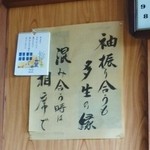 袖振り合うも
多生の縁
混み合う時は
相席で
98